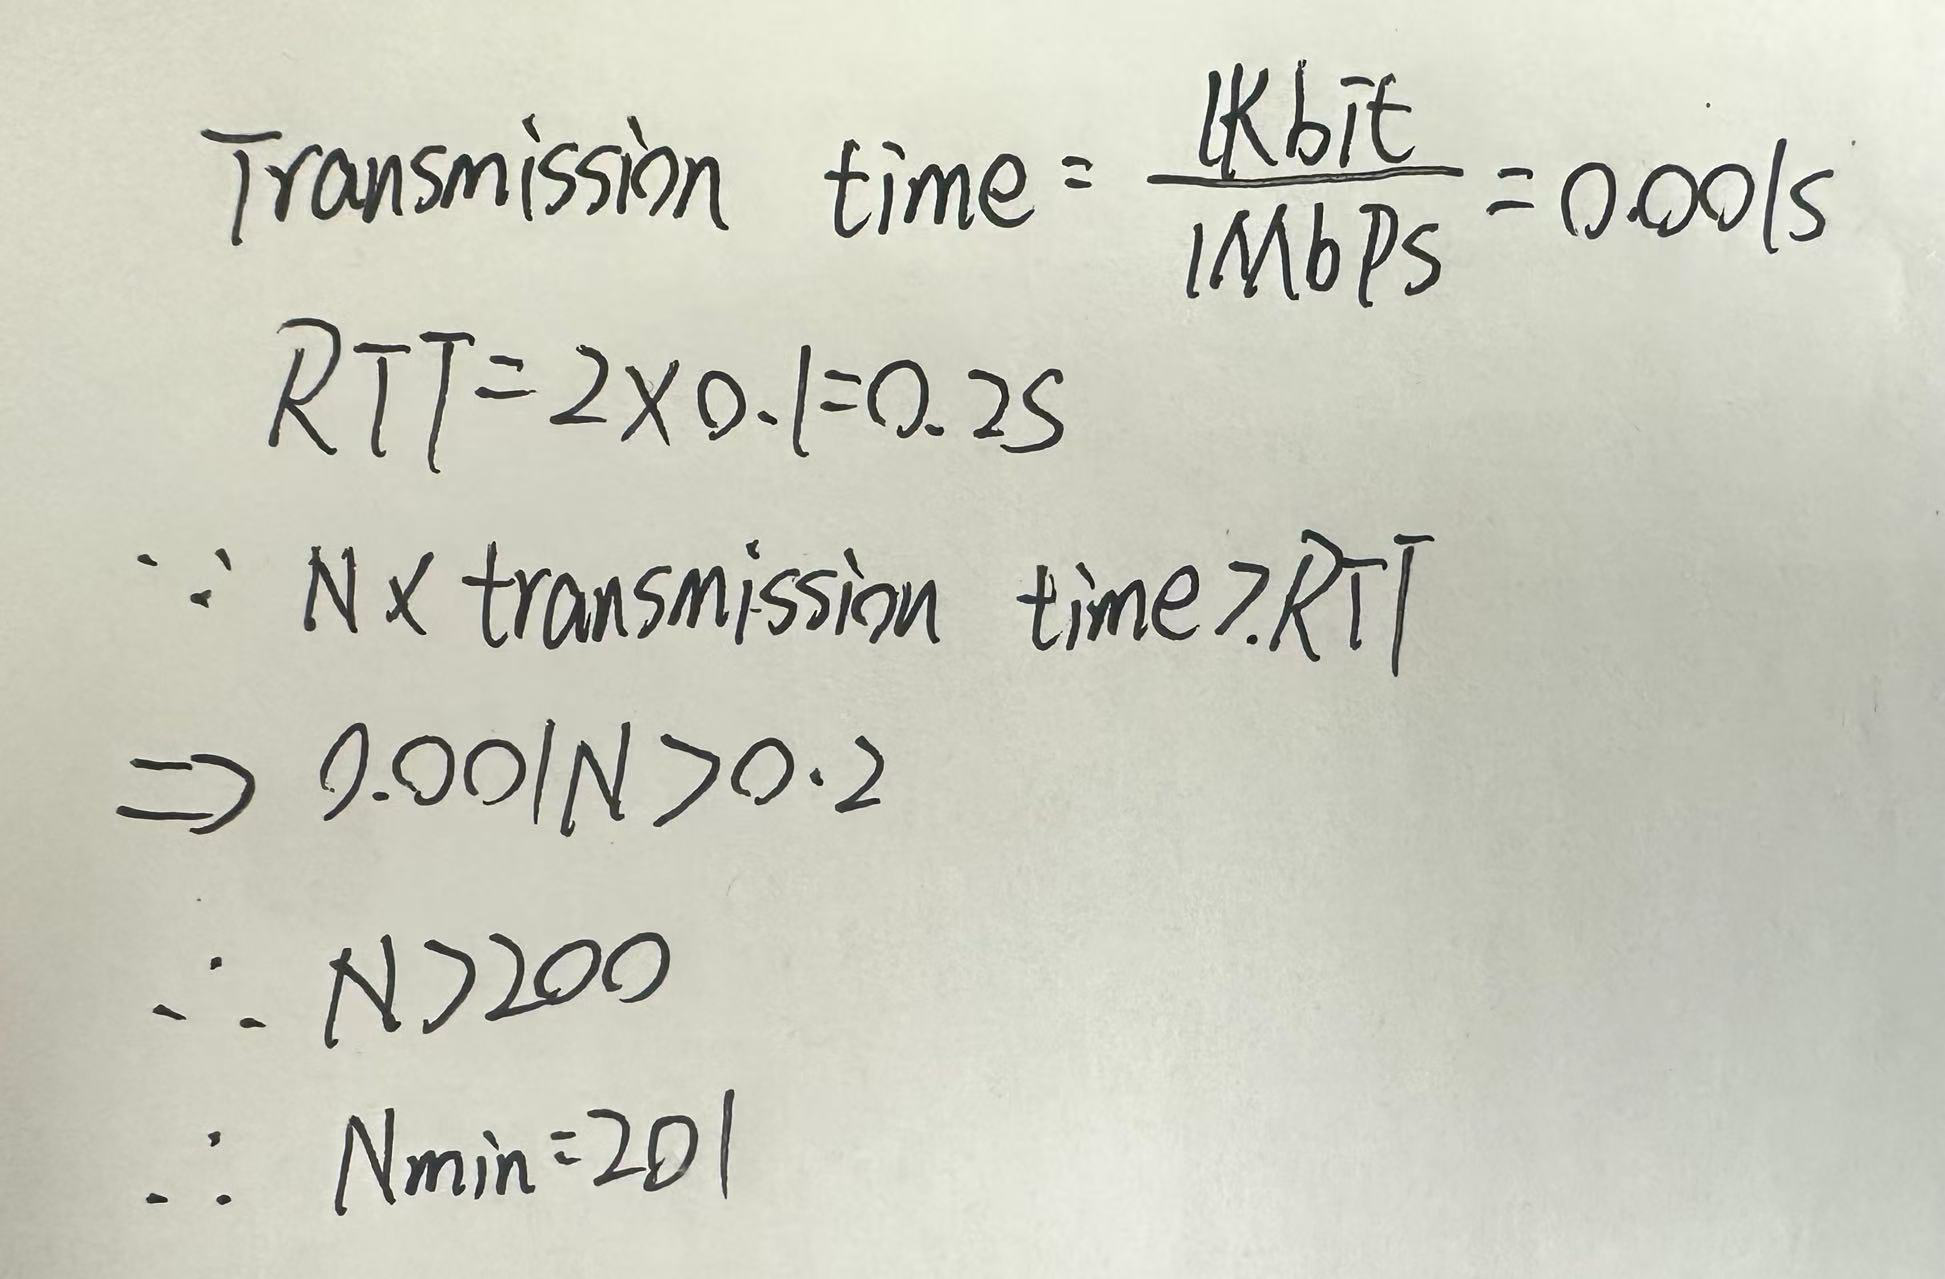 Transmission time = 1Kbit / 1Mbps = 0.001s
RTT = 2×0.1=0.2s
∵ N× transmission time ≥ RTT
⇒ 0.001N > 0.2
∴ N > 200
∴ Nmin = 201